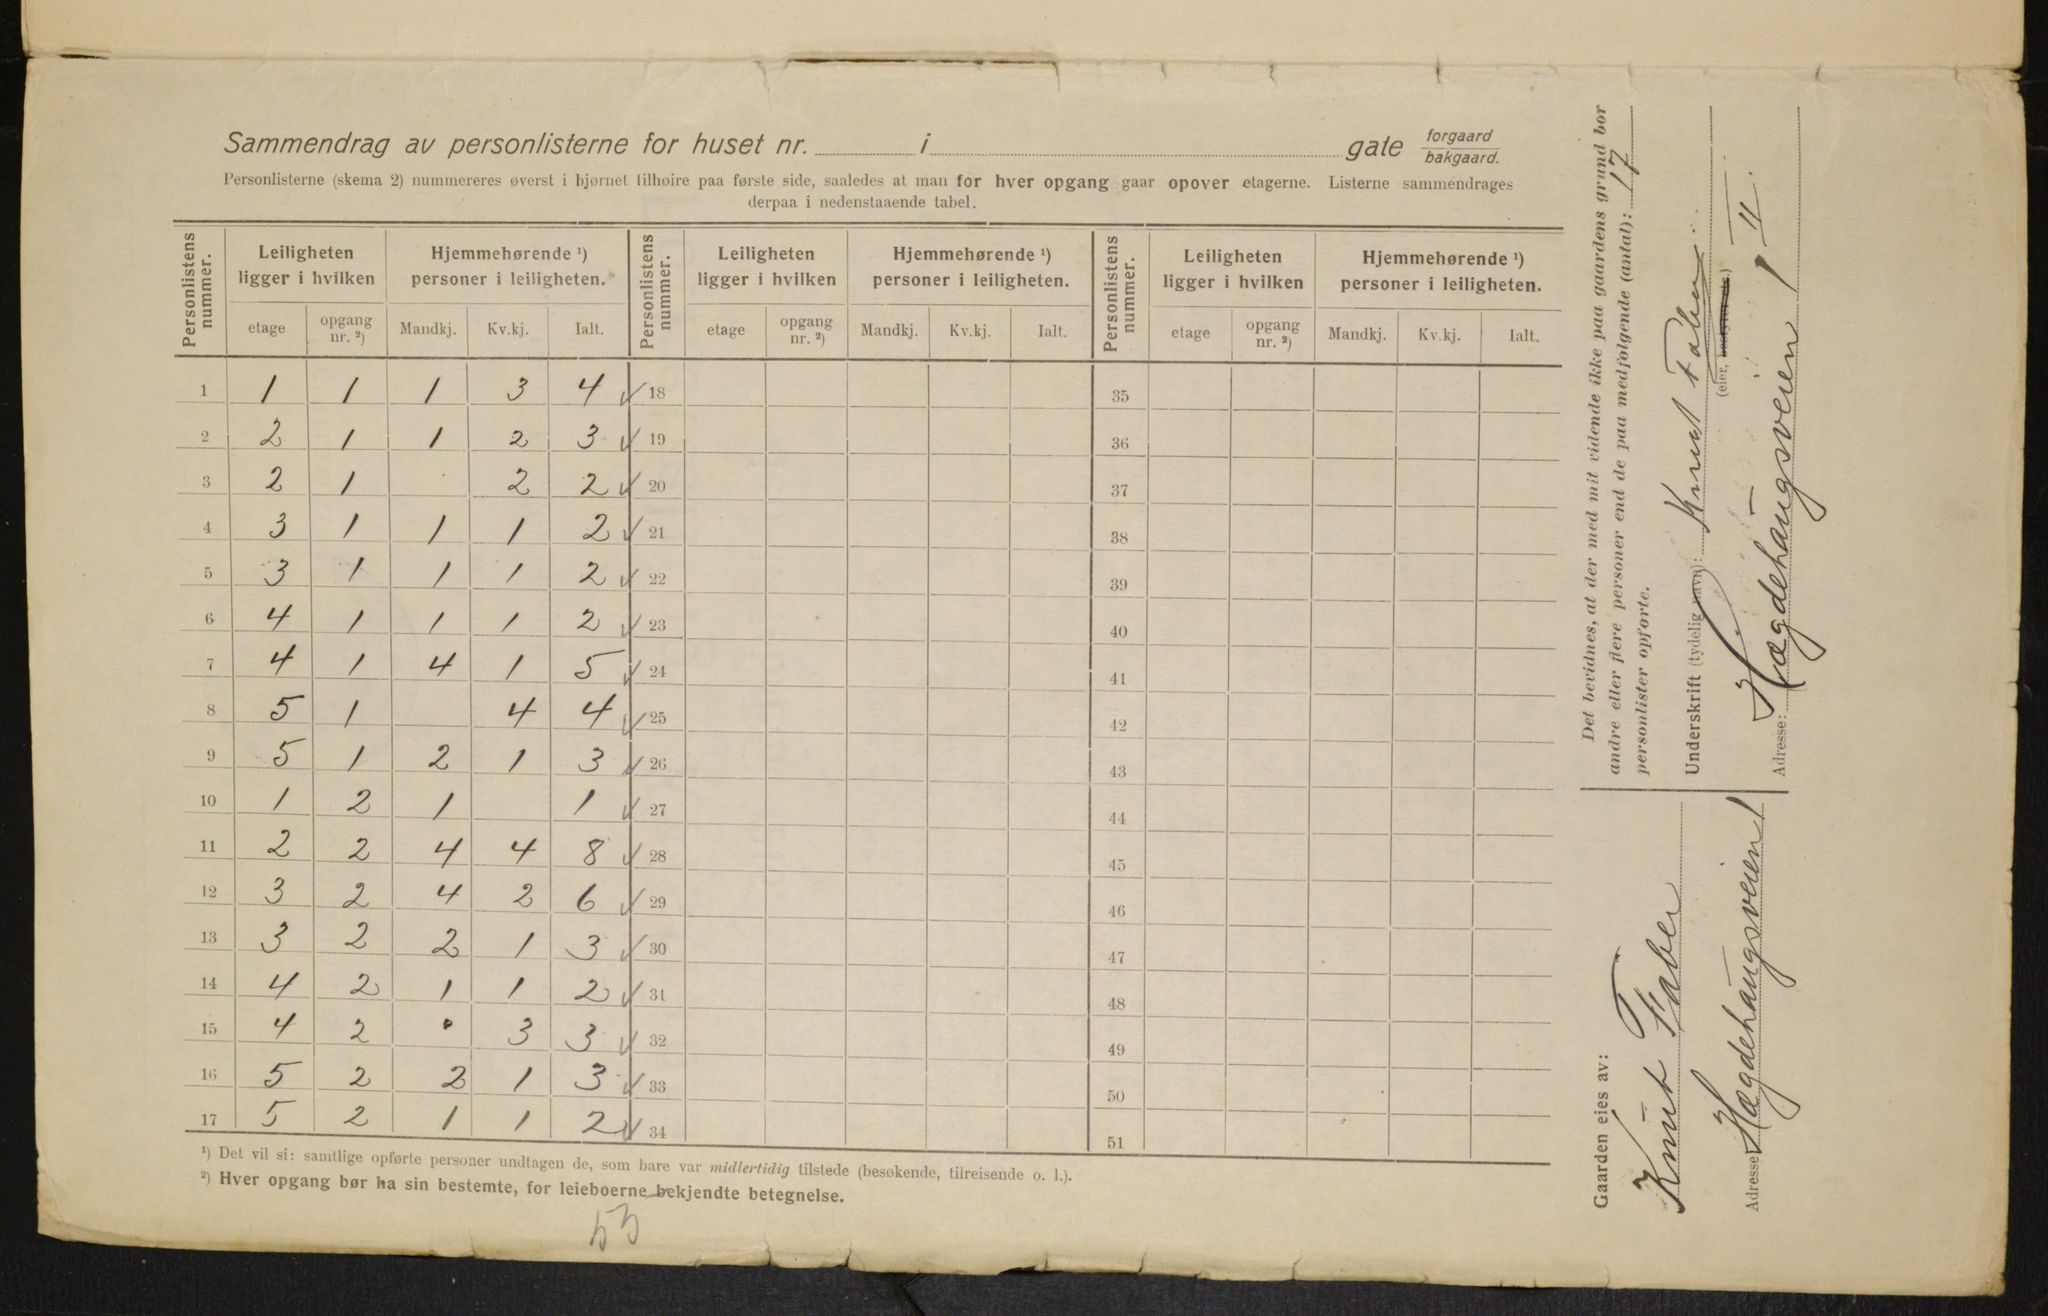 Sammendrag av personlisterne for huset nr. i gate forgaard bakgaard.
Personlisterne (skema 2) nummereres øverst i hjørnet tilhøire paa første side, saaledes at man for hver opgang gaar opover etagerne. Listerne sammendrages
derpaa i nedenstaaende tabel.
Personlistens nummer. Leiligheten ligger i hvilken Hjemmehørende ¹) personer i leiligheten. Personlistens nummer. Leiligheten ligger i hvilken Hjemmehørende ¹) personer i leiligheten. Personlistens nummer. Leiligheten ligger i hvilken Hjemmehørende ¹) personer i leiligheten.
etage opgang nr. ²) Mandkj. Kv.kj. Ialt. etage opgang nr. ²) Mandkj. Kv.kj. Ialt. etage opgang nr. ²) Mandkj. Kv.kj. Ialt.
1 1 1 1 3 4 ✓ 18 35
2 2 1 1 2 3 ✓ 19 36
3 2 1 2 2 ✓ 20 37
4 3 1 1 1 2 ✓ 21 38
5 3 1 1 1 2 ✓ 22 39
6 4 1 1 1 2 ✓ 23 40
7 4 1 4 1 5 ✓ 24 41
8 5 1 4 4 ✓ 25 42
9 5 1 2 1 3 ✓ 26 43
10 1 2 1 1 ✓ 27 44
11 2 2 4 4 8 ✓ 28 45
12 3 2 4 2 6 ✓ 29 46
13 3 2 2 1 3 ✓ 30 47
14 4 2 1 1 2 ✓ 31 48
15 4 2 • 3 3 ✓ 32 49
16 5 2 2 1 3 ✓ 33 50
17 5 2 1 1 2 ✓ 34 51
¹) Det vil si: samtlige opførte personer undtagen de, som bare var midlertidig tilstede (besøkende, tilreisende o. l.).
²) Hver opgang bør ha sin bestemte, for leieboerne bekjendte betegnelse.
53
Det bevidnes, at der med mit vidende ikke paa gaardens grund bor
andre eller flere personer end de paa medfolgende (antal): 17
personlister opforte.
Underskrift (tydelig navn): Knut Faber.
(eier,
Adresse: Hægdehaugsveien 1 II.
Gaarden eies av:
Knut Faber
Adresse Hægdehaugsveien 1